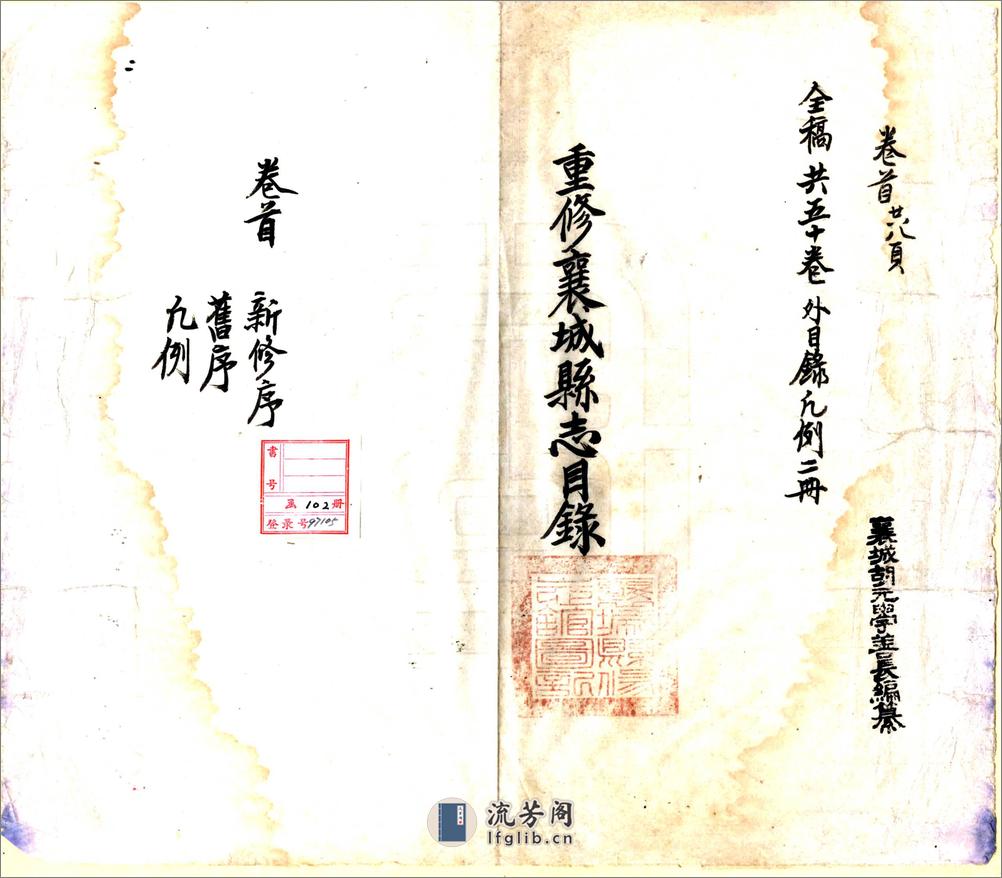 卷首 廿八頁
襄城胡元學善長編纂
全稿 共五十卷 外目錄凡例二冊
重修襄城縣志目錄
卷首
新修序
舊序
凡例
書号
函 102 册
登录号 97105
流芳阁
lfglib.cn